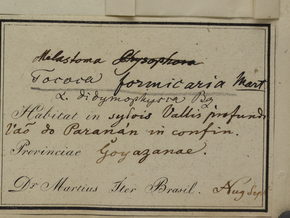 Melastoma Chysophora
Tococa formicaria Mart
L. didymophysca Bg
Habitat in sylvis Vallis profund
Vao do Paranan in confin.
Provinciae Goyazanae.
Dr Martius Iter Brasil. Aug Sept